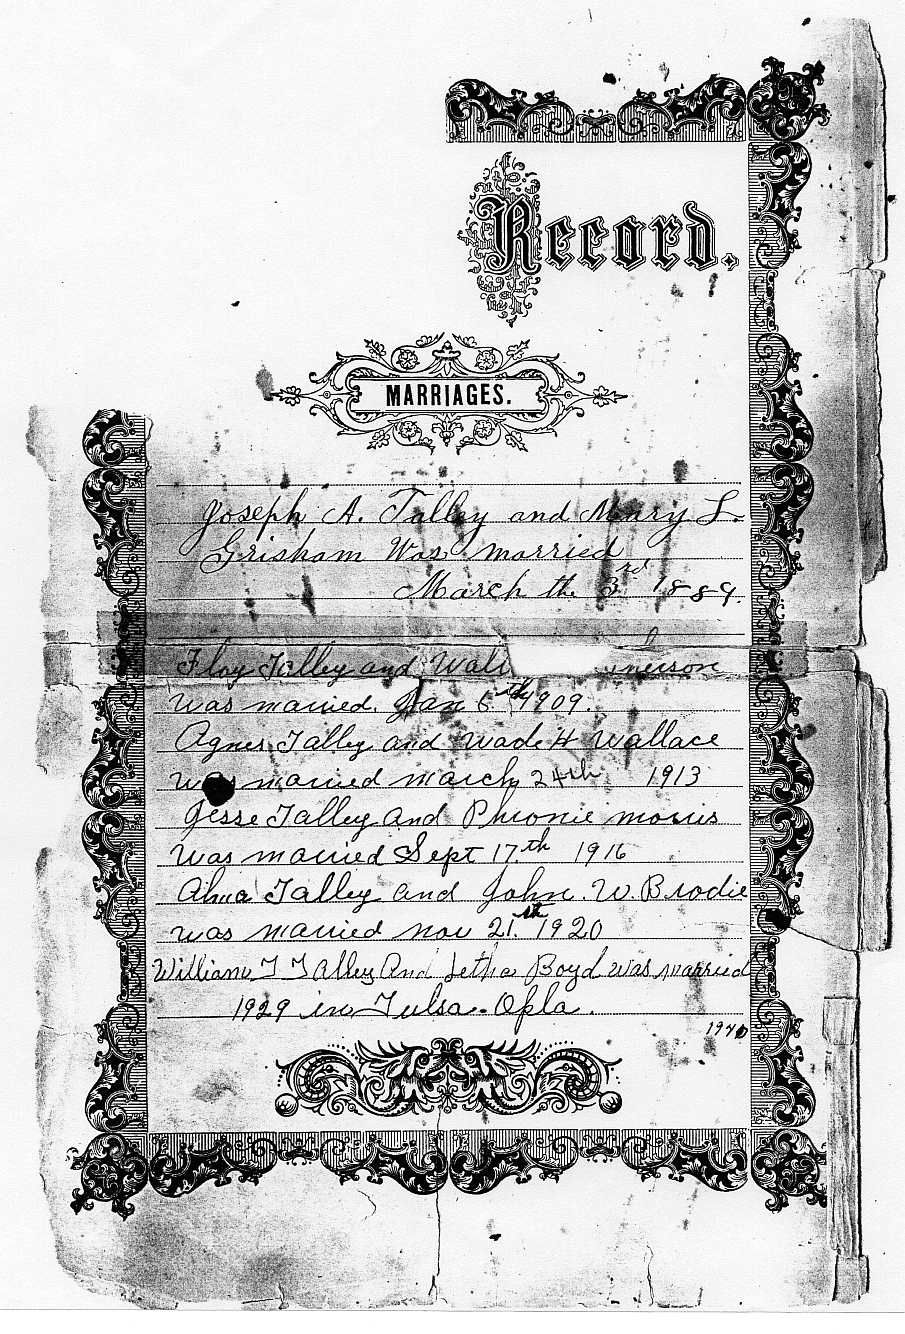 Record.
MARRIAGES.
Joseph A. Talley and Mary L.
Grisham Was married
March the 3rd 1889.
Floy Talley and Wal
was married. Jan 6th 1909.
Agnes Talley and Wade H Wallace
was married march 24th 1913
Jesse Talley and Phronie morris
was married Sept 17th 1916
Alma Talley and John. W. Brodie
was married nov 21.st 1920
William T Talley And Letha Boyd was married
1929 in Tulsa. Opla.